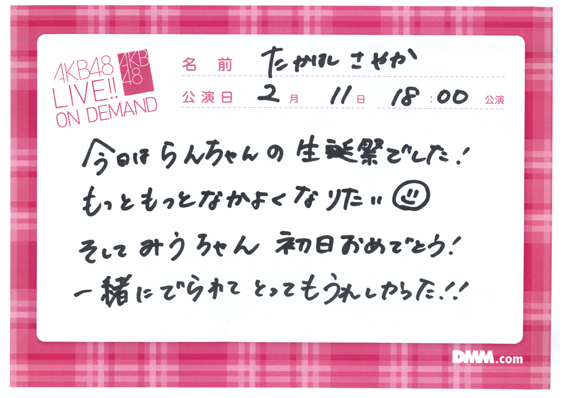 AKB48
LIVE!!
ON DEMAND
AKB
48
名 前 たかはし さやか
公演日 2月 11日 18:00 公演
今日は らんちゃんの 生誕祭でした!
もっともっとなかよくなりたいい
そして みうちゃん 初日おめでとう!
一緒にでられて とってもうれしかった!!
DMM.com